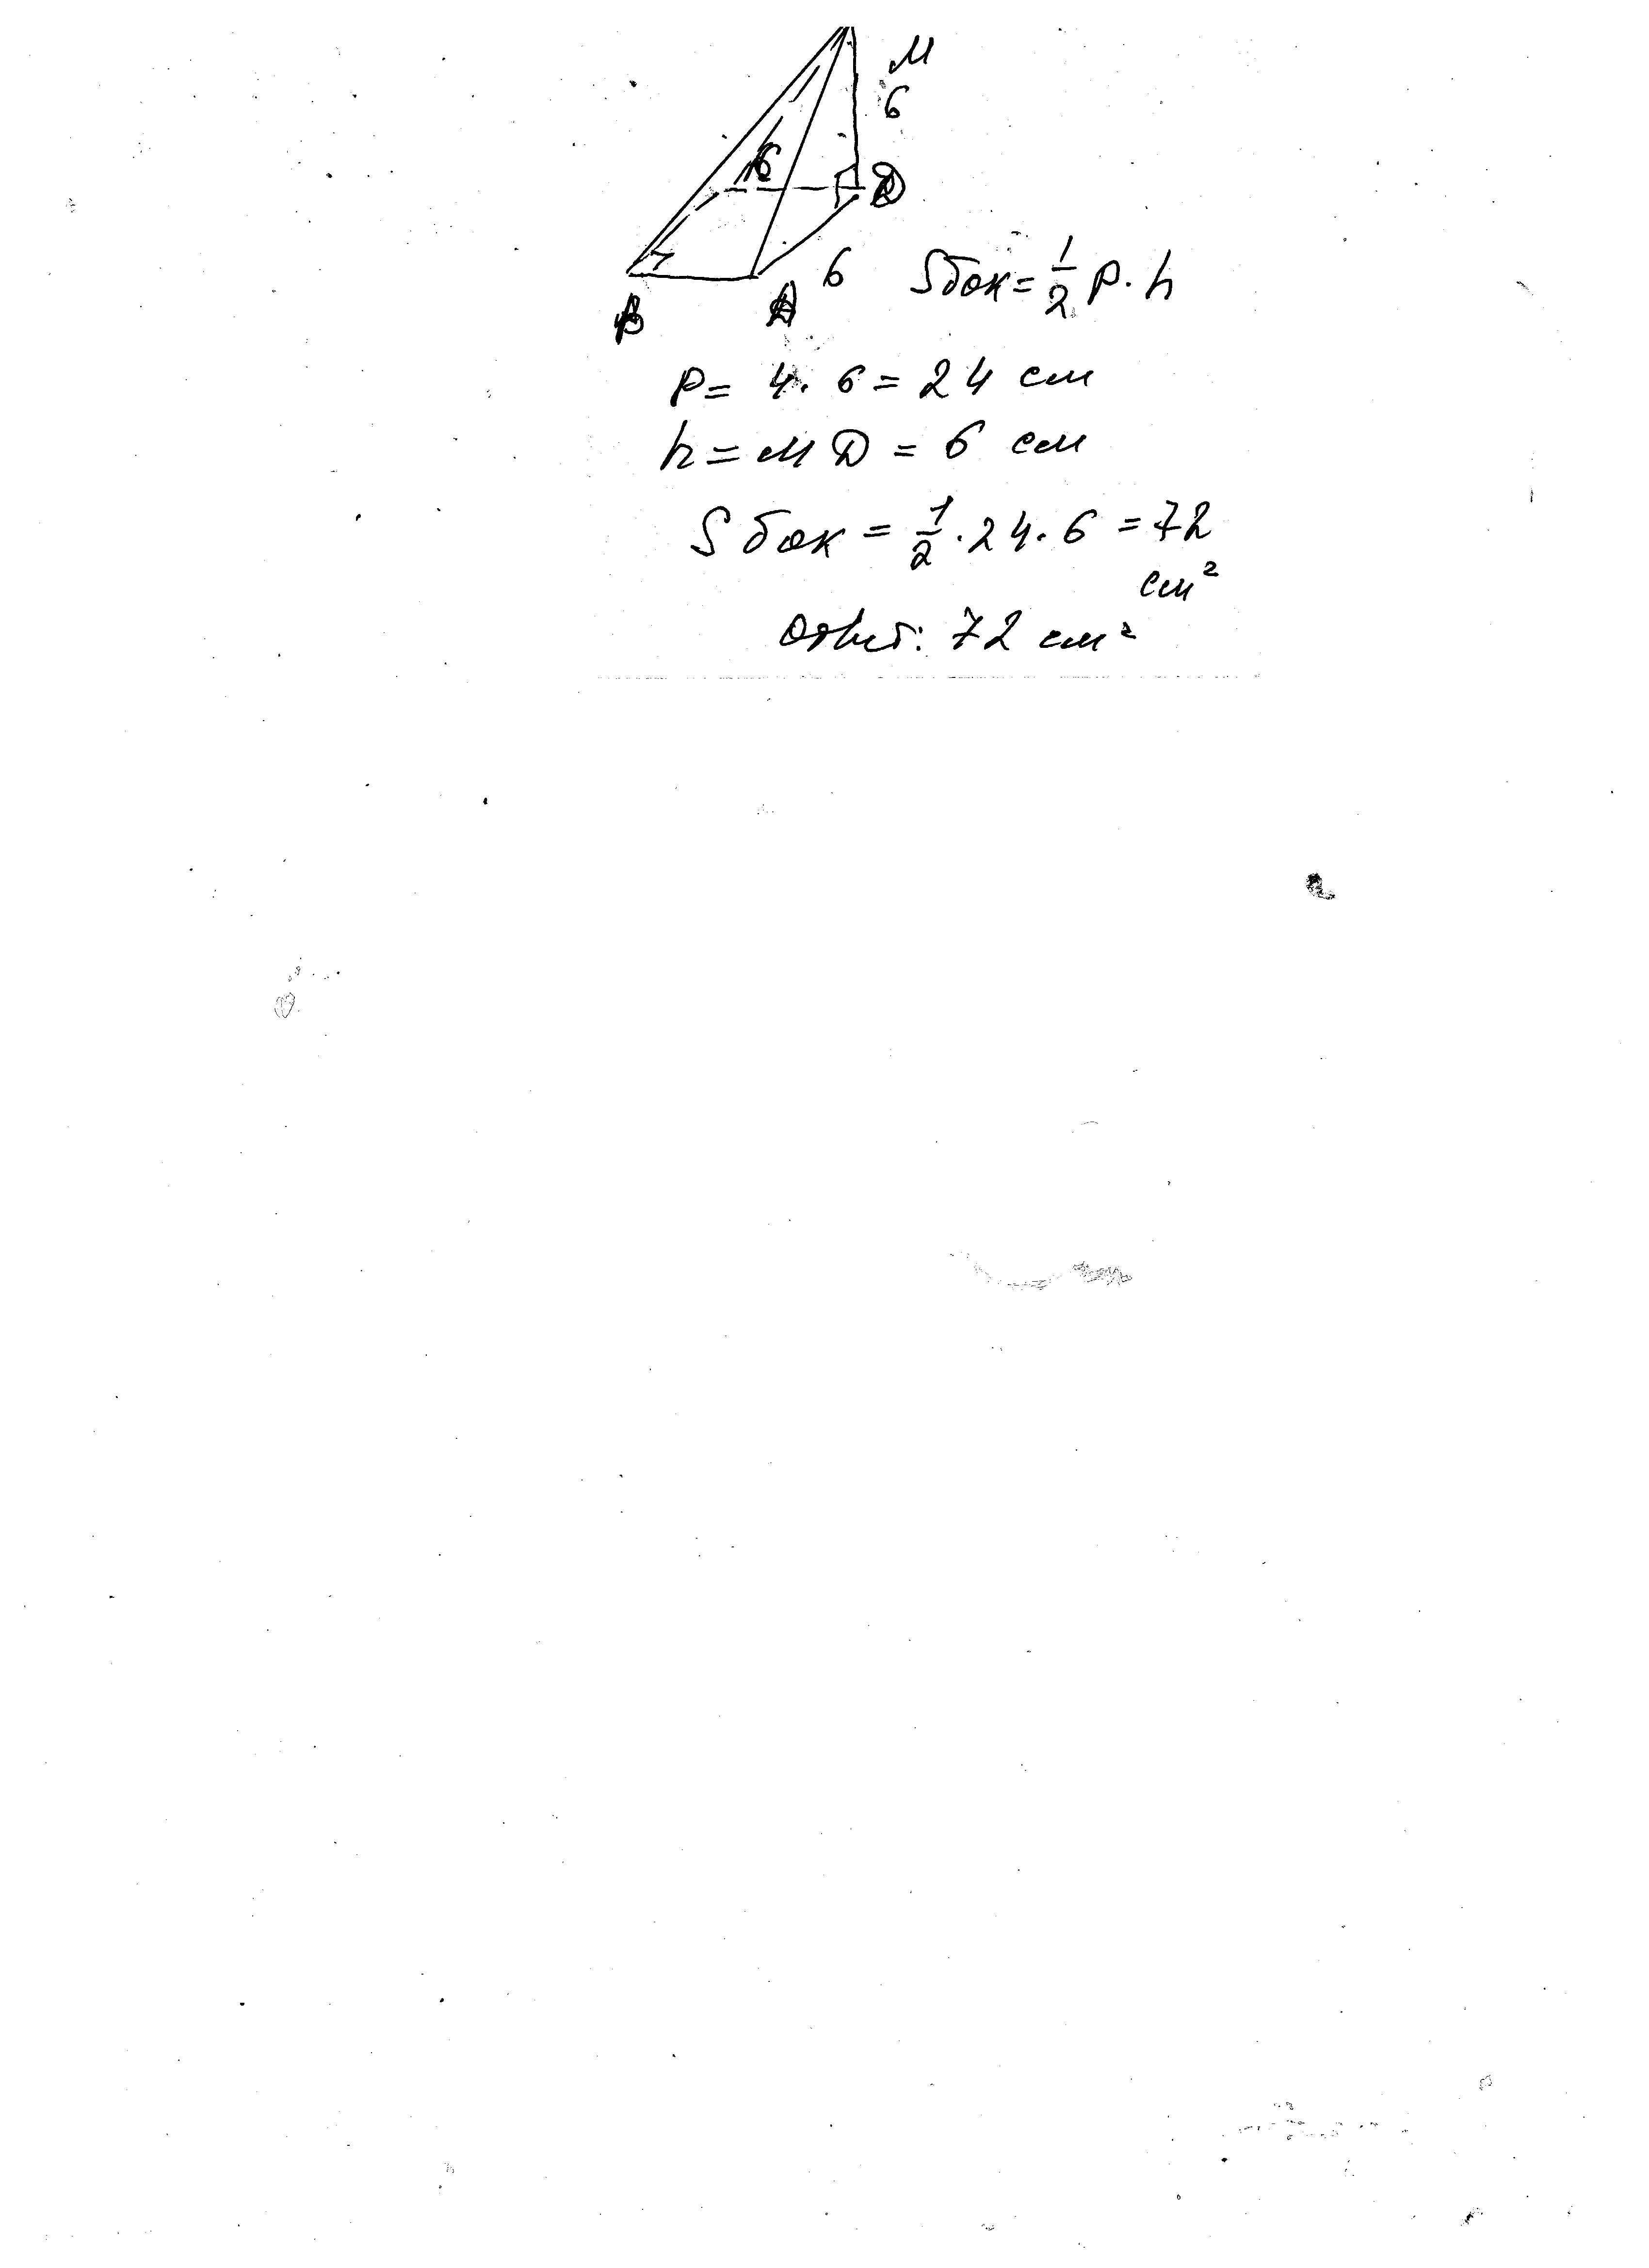 М
6
Д
6
В
А
Sбок = 1/2 P · h
P = 4 · 6 = 24 см
h = МД = 6 см
Sбок = 1/2 · 24 · 6 = 72
см²
Ответ: 72 см²